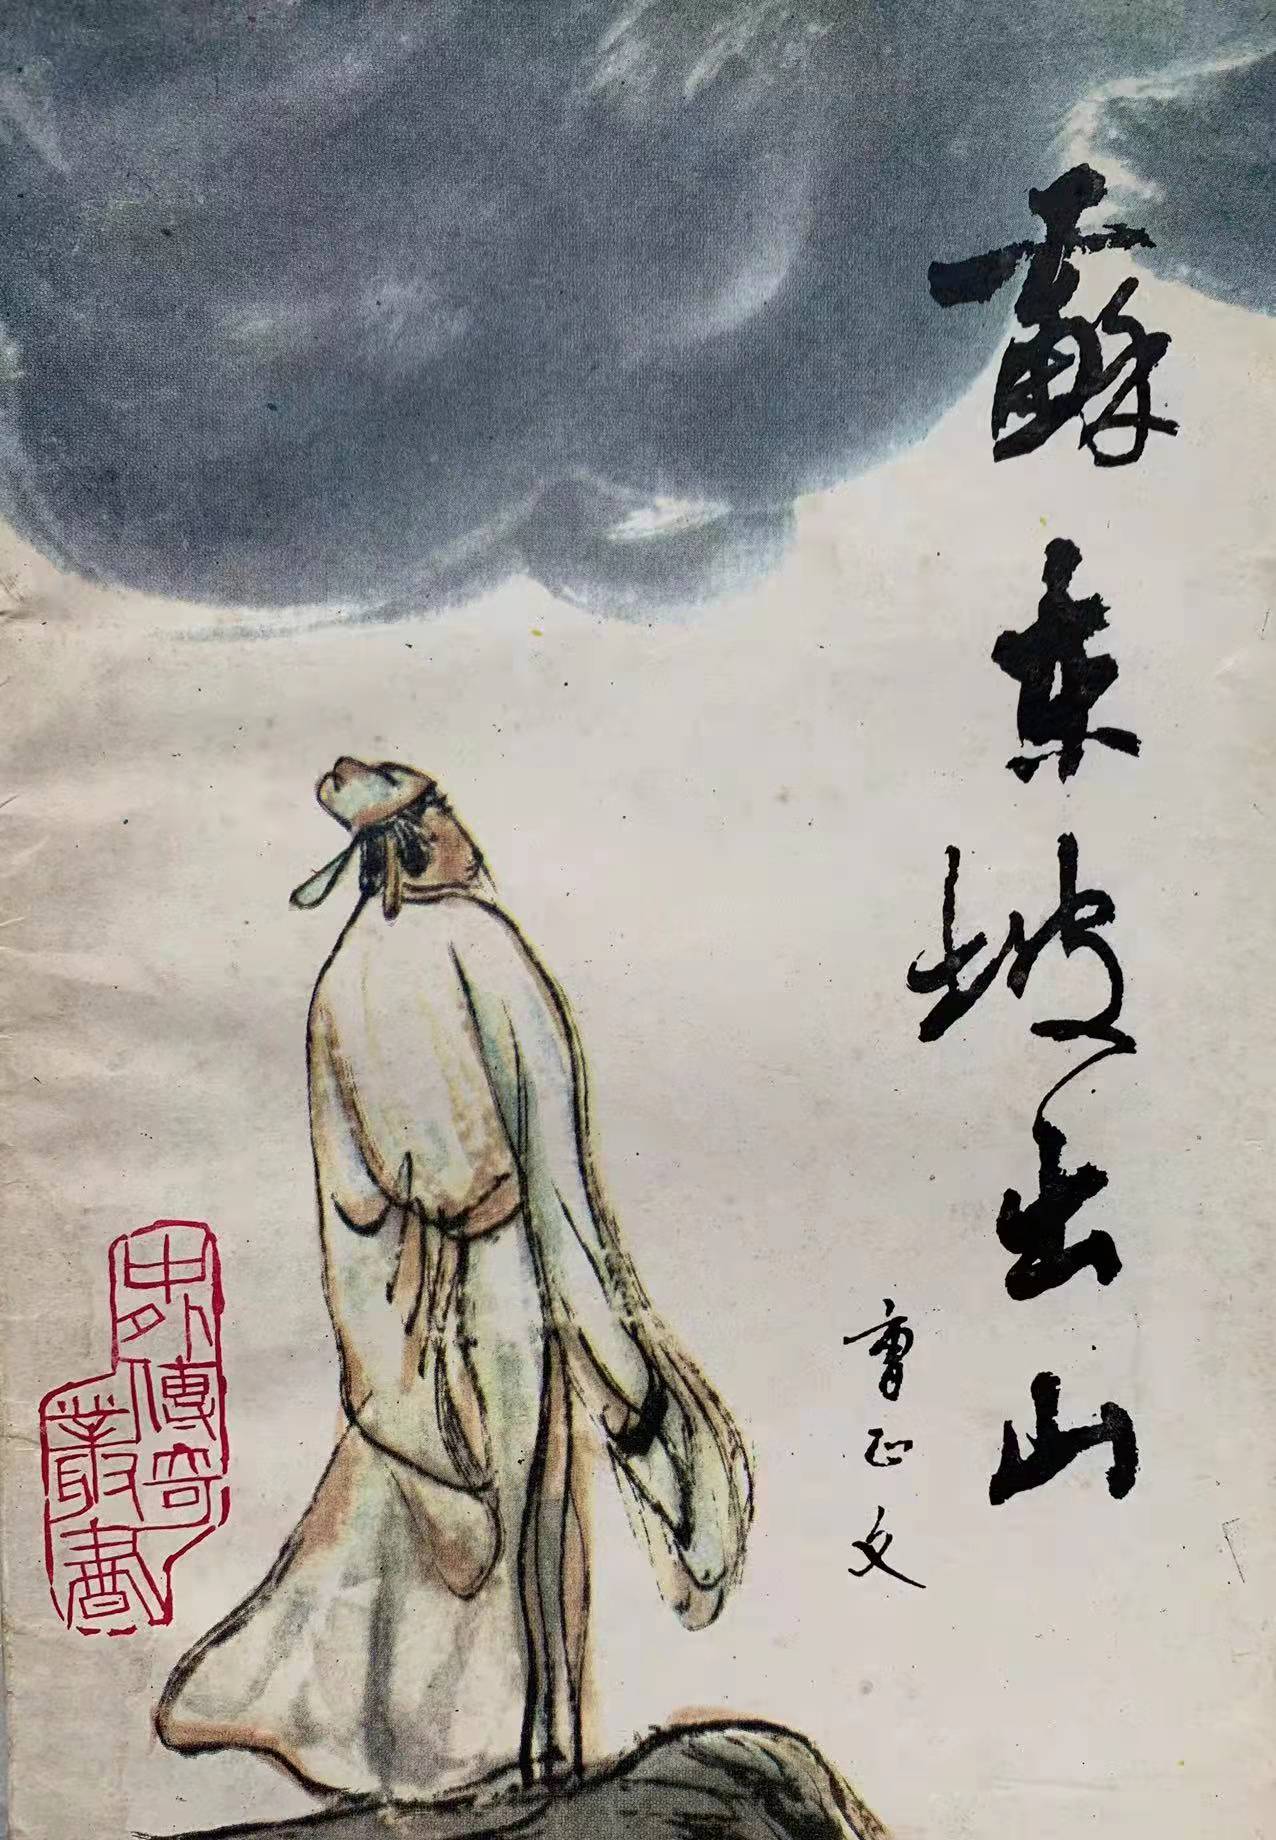 蘇東坡出山
曹正文
中外傳奇
叢書